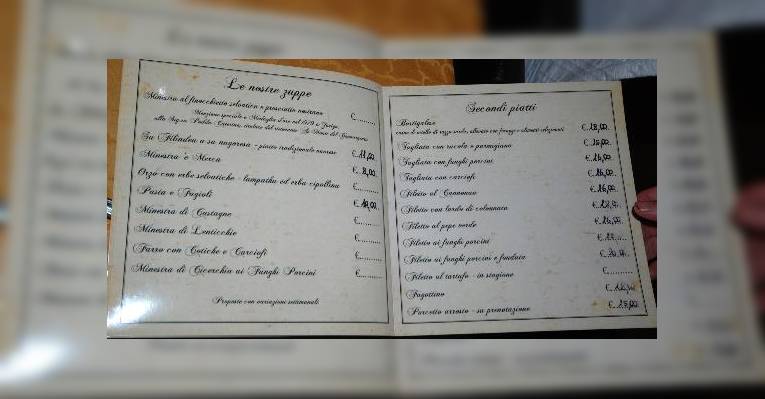 Le nostre zuppe
Minestra al finocchietto selvatico e prosciutto nostrano €..........
Menzione speciale e Medaglia d'oro nel 1979 a Parigi
Su Filindeu a sa nugoresa - piatto tradizionale nuorese € 11,00
Minestra 'e Merca € 8,00
Orzo con erbe selvatiche - lampathu ed erba cipollina €..........
Pasta e Fagioli € 10,00
Minestra di Castagne €..........
Minestra di Lenticchie €..........
Farro con Cotiche e Carciofi €..........
Minestra di Cicerchia ai Funghi Porcini €..........
Proposte con variazioni settimanali
Secondi piatti
Bertigulau
carne di vitello di razza sarda, allevato con foraggi e alimenti selezionati € 18,00
Tagliata con rucola e parmigiano
Tagliata con funghi porcini € 16,00
Tagliata con carciofi € 16,00
Filetto al Cannonau € 16,00
Filetto con lardo di colonnata
Filetto al pepe verde € 16,00
Filetto ai funghi porcini
Filetto ai funghi porcini e fonduta
Filetto al tartufo - in stagione €..........
Fagottino
Porcetto arrosto - su prenotazione € 15,00